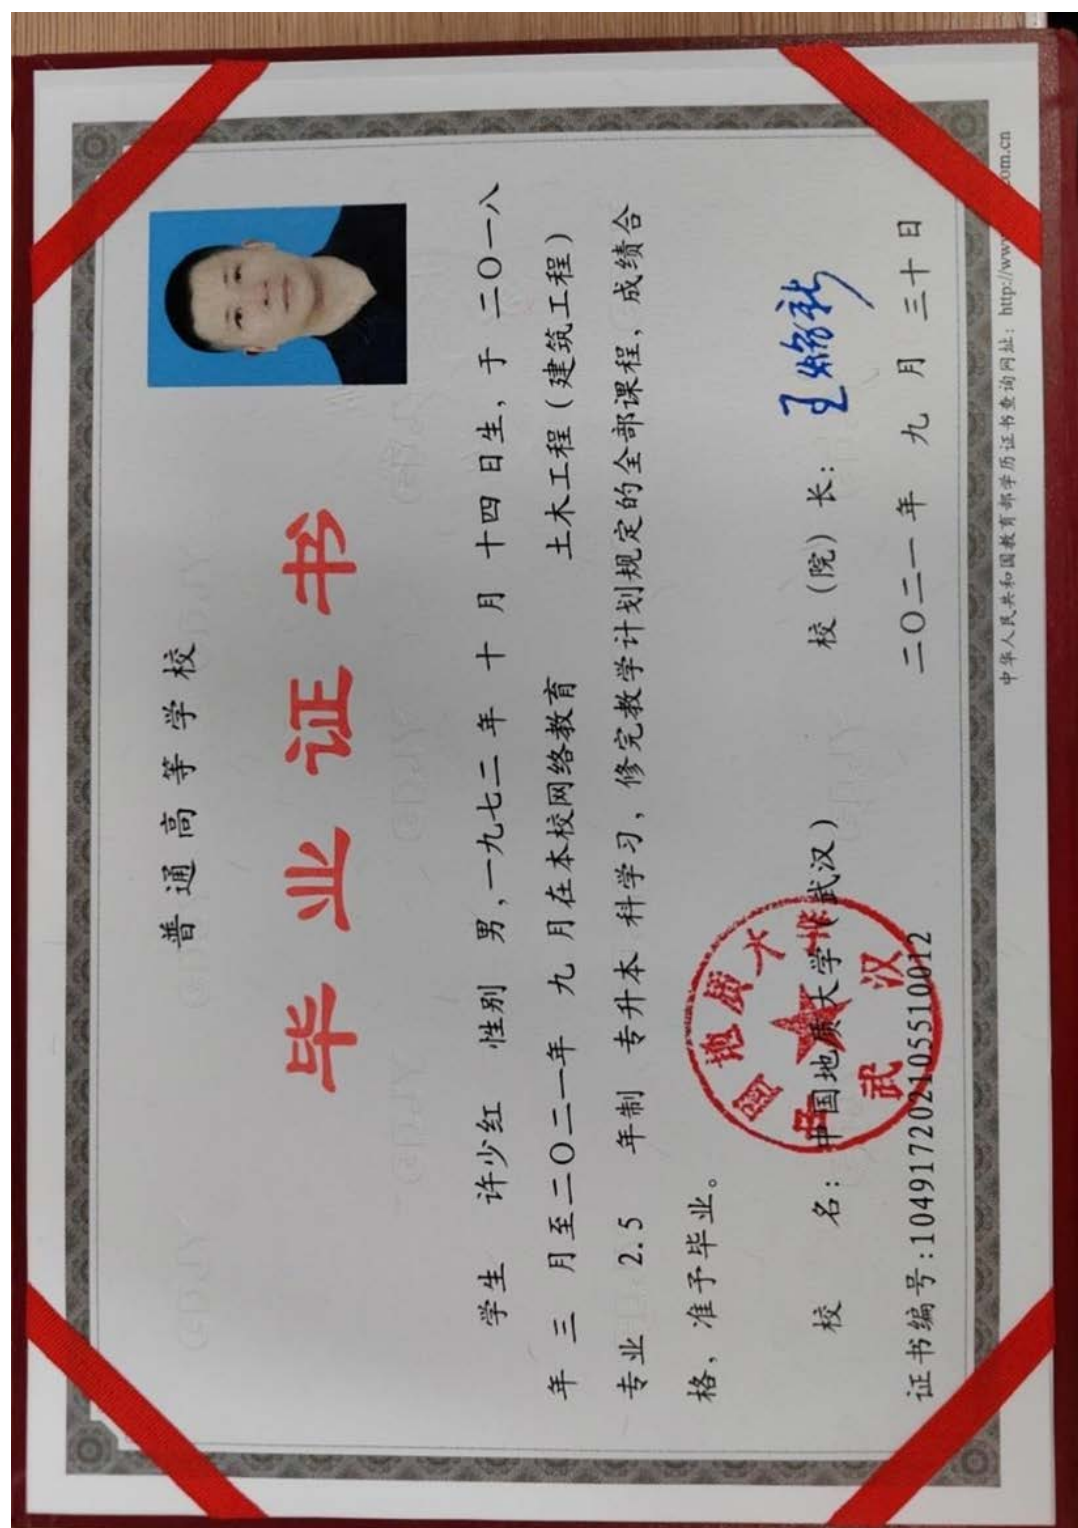 普通高等学校
毕业证书
学生 许少红 性别 男,一九七二年 十 月 十四 日生，于 二〇一八
年 三 月至二〇二一年 九 月在本校网络教育 土木工程（建筑工程）
专业 2.5 年制 专升本 科学习，修完教学计划规定的全部课程，成绩合
格，准予毕业。
校 名：中国地质大学（武汉） 校（院）长：
证书编号:104917202105510012 二〇二一年 九 月 三十 日
中华人民共和国教育部学历证书查询网址：http://www .com.cn